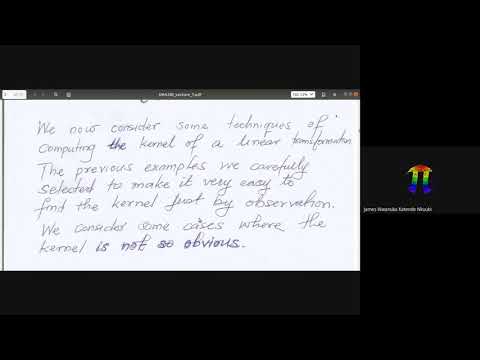 We now consider some techniques of
computing the kernel of a linear transformation.
The previous examples we carefully
selected to make it very easy to
find the kernel just by observation.
We consider some cases where the
kernel is not so obvious.
James Kwanuka Katende Nkuubi